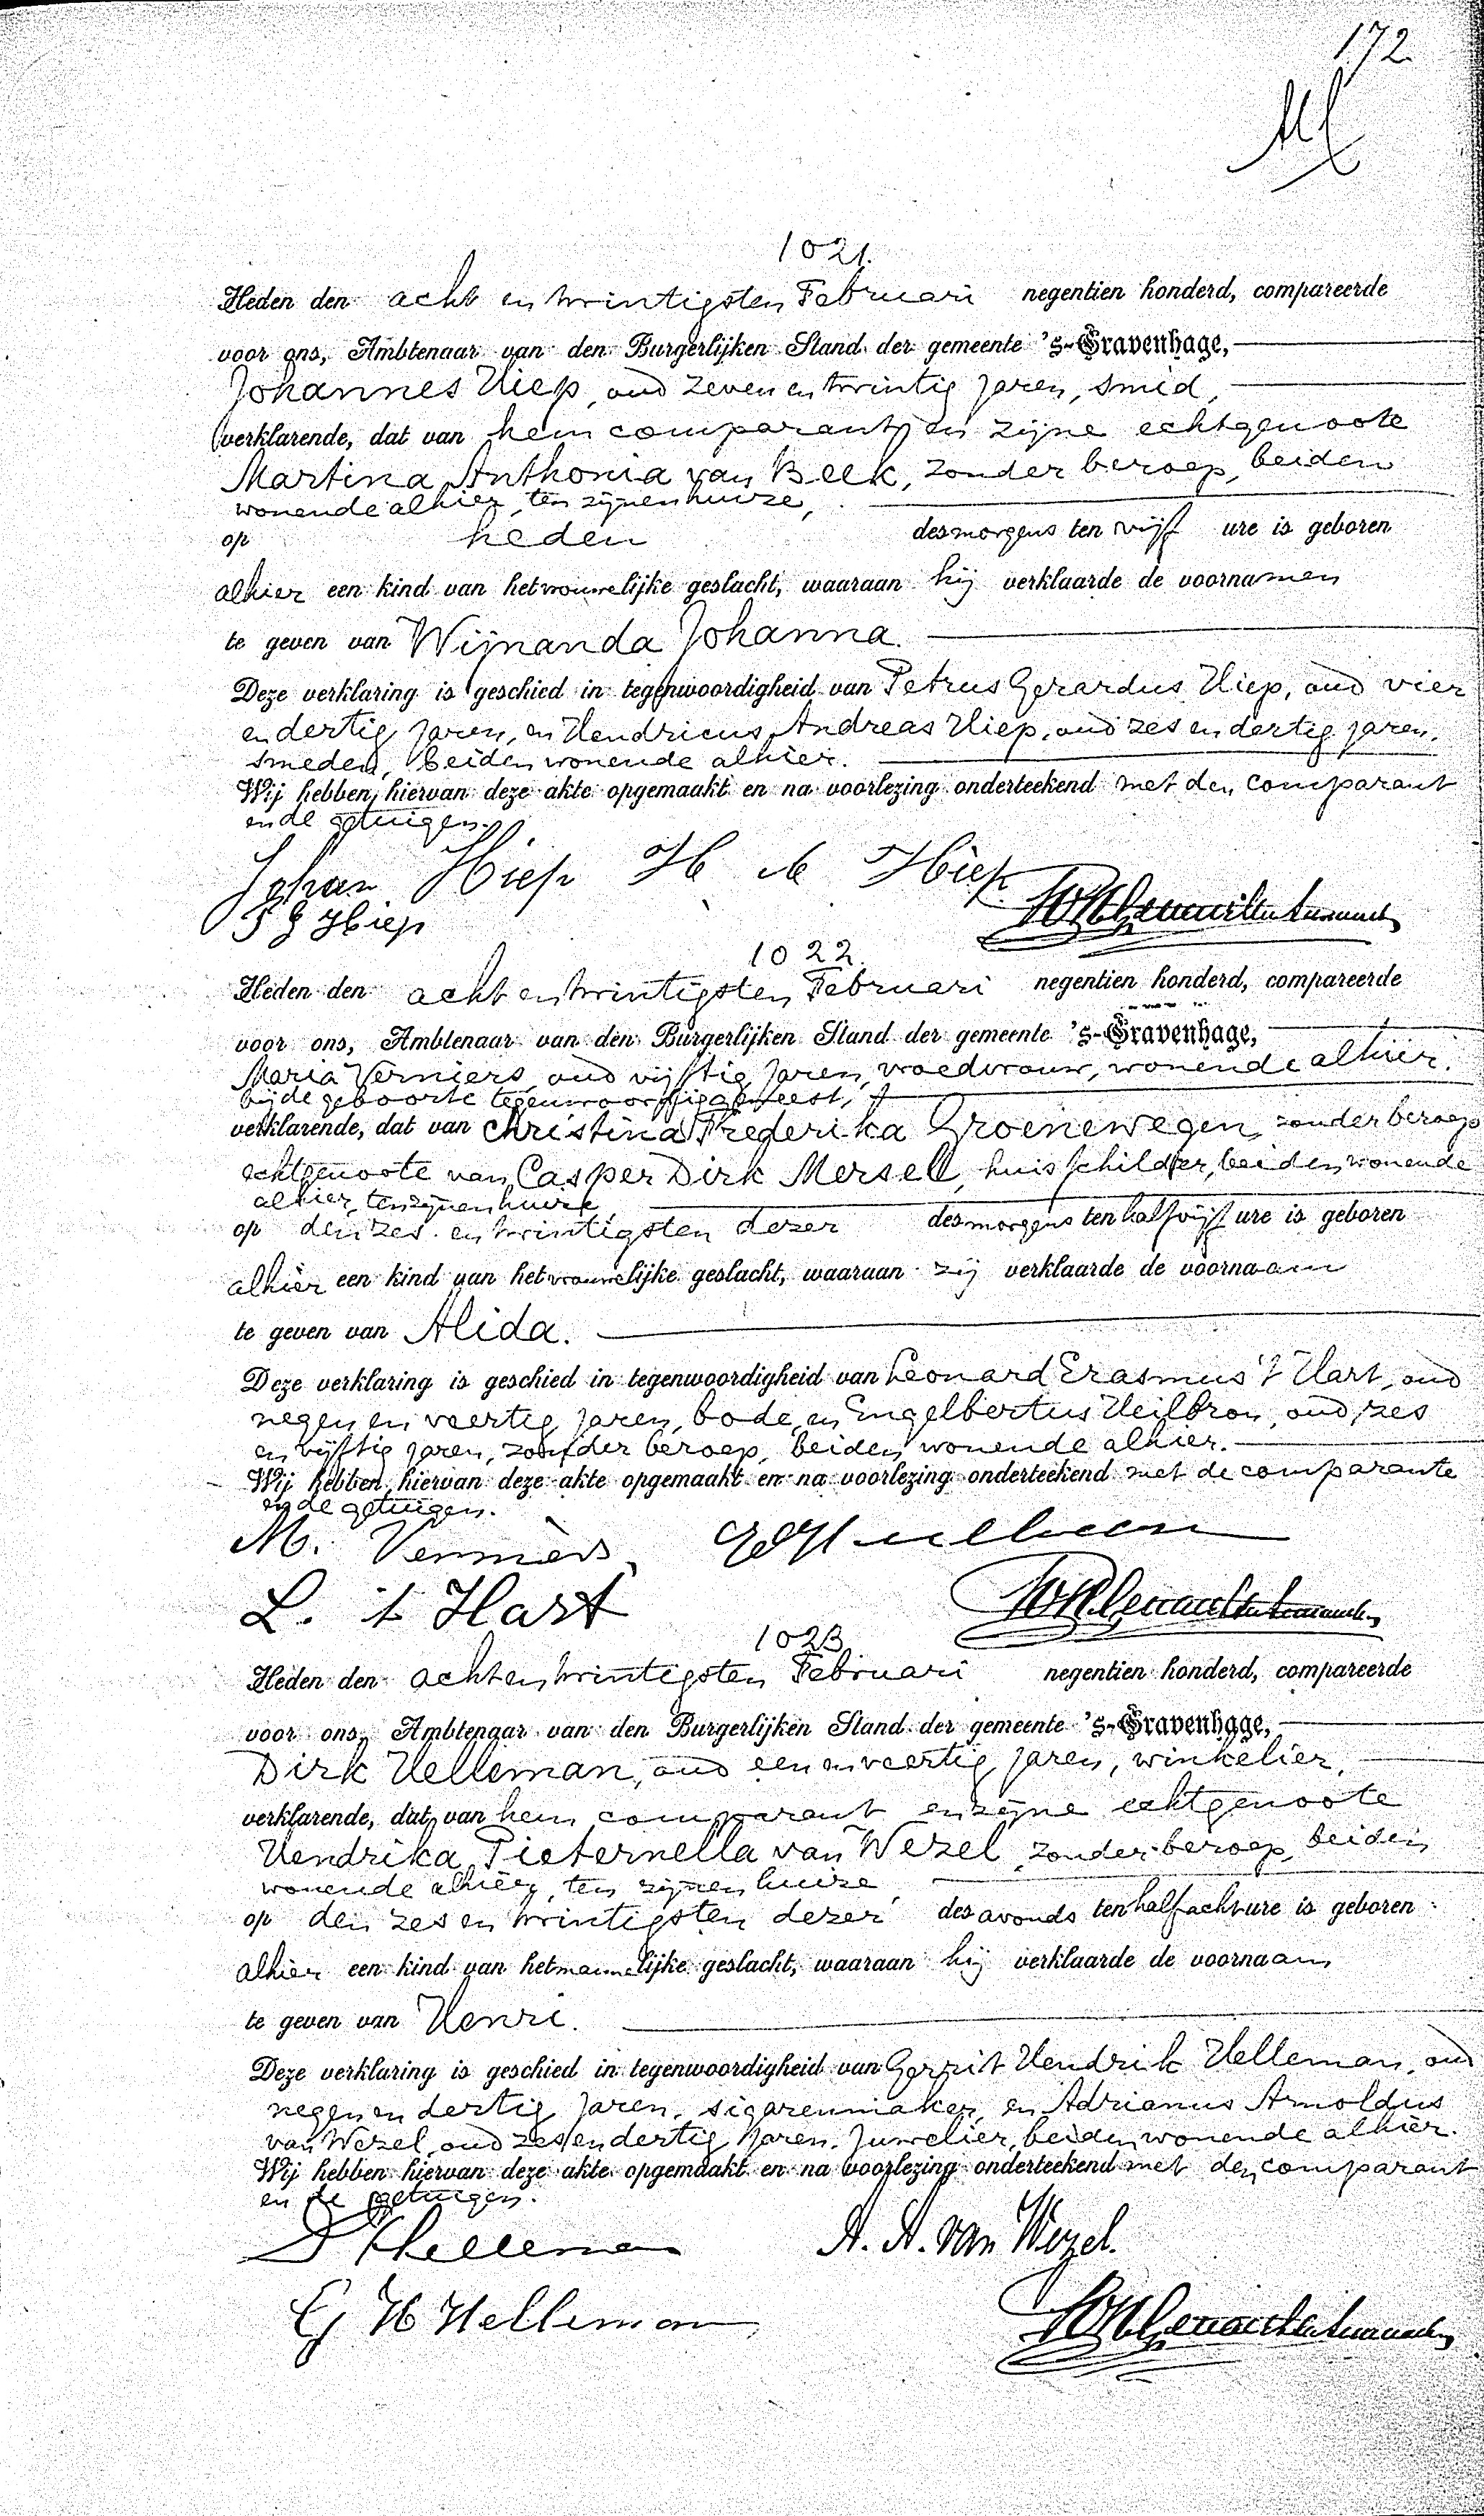 172
1021.
Heden den acht en twintigsten Februari negentien honderd, compareerde
voor ons, Ambtenaar van den Burgerlijken Stand der gemeente 's-Gravenhage,
Johannes Hiep, oud zeven en twintig jaren, smid,
verklarende, dat van hem comparant en zijne echtgenoote
Martina Anthonia van Beek, zonder beroep, beiden
wonende alhier, ten zijnen huize,
op heden des morgens ten vijf ure is geboren
alhier een kind van het vrouwelijke geslacht, waaraan hij verklaarde de voornamen
te geven van Wijnanda Johanna.
Deze verklaring is geschied in tegenwoordigheid van Petrus Gerardus Hiep, oud vier
en dertig jaren, en Hendricus Andreas Hiep, oud zes en dertig jaren,
smeden, beiden wonende alhier.
Wij hebben hiervan deze akte opgemaakt en na voorlezing onderteekend met den comparant
en de getuigen.
Johan Hiep H A Hiep
P G Hiep
1022.
Heden den acht en twintigsten Februari negentien honderd, compareerde
voor ons, Ambtenaar van den Burgerlijken Stand der gemeente 's-Gravenhage,
Maria Verniers, oud vijftig jaren, vroedvrouw, wonende alhier,
bij de geboorte tegenwoordig geweest,
verklarende, dat van Christina Frederika Groenewegen, zonder beroep
echtgenoote van Casper Dirk Mersel, huisschilder, beiden wonende
alhier, ten zijnen huize,
op den zes en twintigsten dezer des morgens ten half vijf ure is geboren
alhier een kind van het vrouwelijke geslacht, waaraan zij verklaarde de voornaam
te geven van Alida.
Deze verklaring is geschied in tegenwoordigheid van Leonard Erasmus 't Hart, oud
negen en veertig jaren, bode, en Engelbertus Heilbron, oud zes
en vijftig jaren, zonder beroep, beiden wonende alhier.
Wij hebben hiervan deze akte opgemaakt en na voorlezing onderteekend met de comparante
en de getuigen.
M. Verniers
L. 't Hart
1023
Heden den acht en twintigsten Februari negentien honderd, compareerde
voor ons, Ambtenaar van den Burgerlijken Stand der gemeente 's-Gravenhage,
Dirk Helleman, oud een en veertig jaren, winkelier,
verklarende, dat van hem comparant en zijne echtgenoote
Hendrika Pieternella van Wezel, zonder beroep, beiden
wonende alhier, ten zijnen huize,
op den zes en twintigsten dezer des avonds ten half acht ure is geboren
alhier een kind van het mannelijke geslacht, waaraan hij verklaarde de voornaam
te geven van Henri.
Deze verklaring is geschied in tegenwoordigheid van Gerrit Hendrik Helleman, oud
negen en dertig jaren, sigarenmaker, en Adrianus Arnoldus
van Wezel, oud zes en dertig jaren, juwelier, beiden wonende alhier.
Wij hebben hiervan deze akte opgemaakt en na voorlezing onderteekend met den comparant
en de getuigen.
D Helleman A. A. van Wezel.
G H Helleman